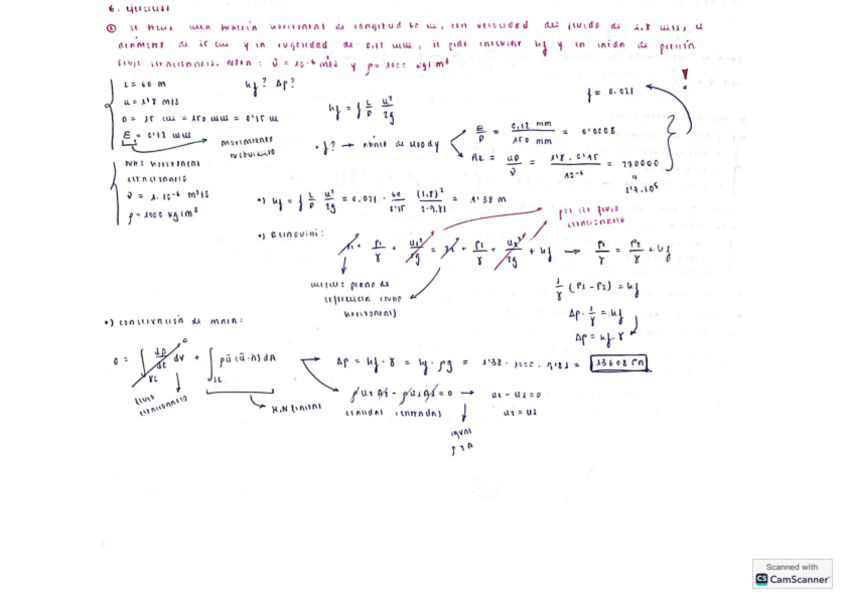 6. Ejercicios
① Se tiene una tubería horizontal de longitud 60 m, con velocidad del fluido de 1.8 m/s, el
diámetro de 15 cm y la rugosidad de 0.12 mm, se pide calcular hf y la caída de presión.
Flujo estacionario. Nota: ν = 10⁻⁶ m²/s y ρ = 1000 kg/m³
L = 60 m
u = 1'8 m/s
D = 15 cm = 150 mm = 0'15 m
E = 0'12 mm
hf? Δp?
hf = f L/D u²/2g
f = 0.021
!
· f? → ábaco de Moody
E/D = 0,12 mm / 150 mm = 0'0008
Re = uD/ν = 1'8 · 0'15 / 10⁻⁶ = 270000
"
2'7·10⁵
tubo horizontal
estacionario
ν = 1·10⁻⁶ m²/s
ρ = 1000 kg/m³
•) hf = f L/D u²/2g = 0.021 · 60/0'15 (1.8)²/2·9.81 = 1'38 m
•) Bernoulli:
z₁ + P₁/γ + u₁²/2g = z₂ + P₂/γ + u₂²/2g + hf → P₁/γ = P₂/γ + hf
por ser flujo
estacionario
mismo plano de
referencia (tubo
horizontal)
1/γ (P₁ - P₂) = hf
Δp · 1/γ = hf
Δp = hf · γ
•) conservación de masa:
0 = ∫vc dρ/dt dv + ∫sc ρū (ū·n̄) dA
0
flujo
estacionario
Δp = hf · γ = hf · ρg = 1'38 · 1000 · 9'81 = 13608 Pa
ρu₂A₂ - ρu₁A₁ = 0 → u₂ - u₁ = 0
u₂ = u₁
igual
ρ y A
Scanned with
CS CamScanner